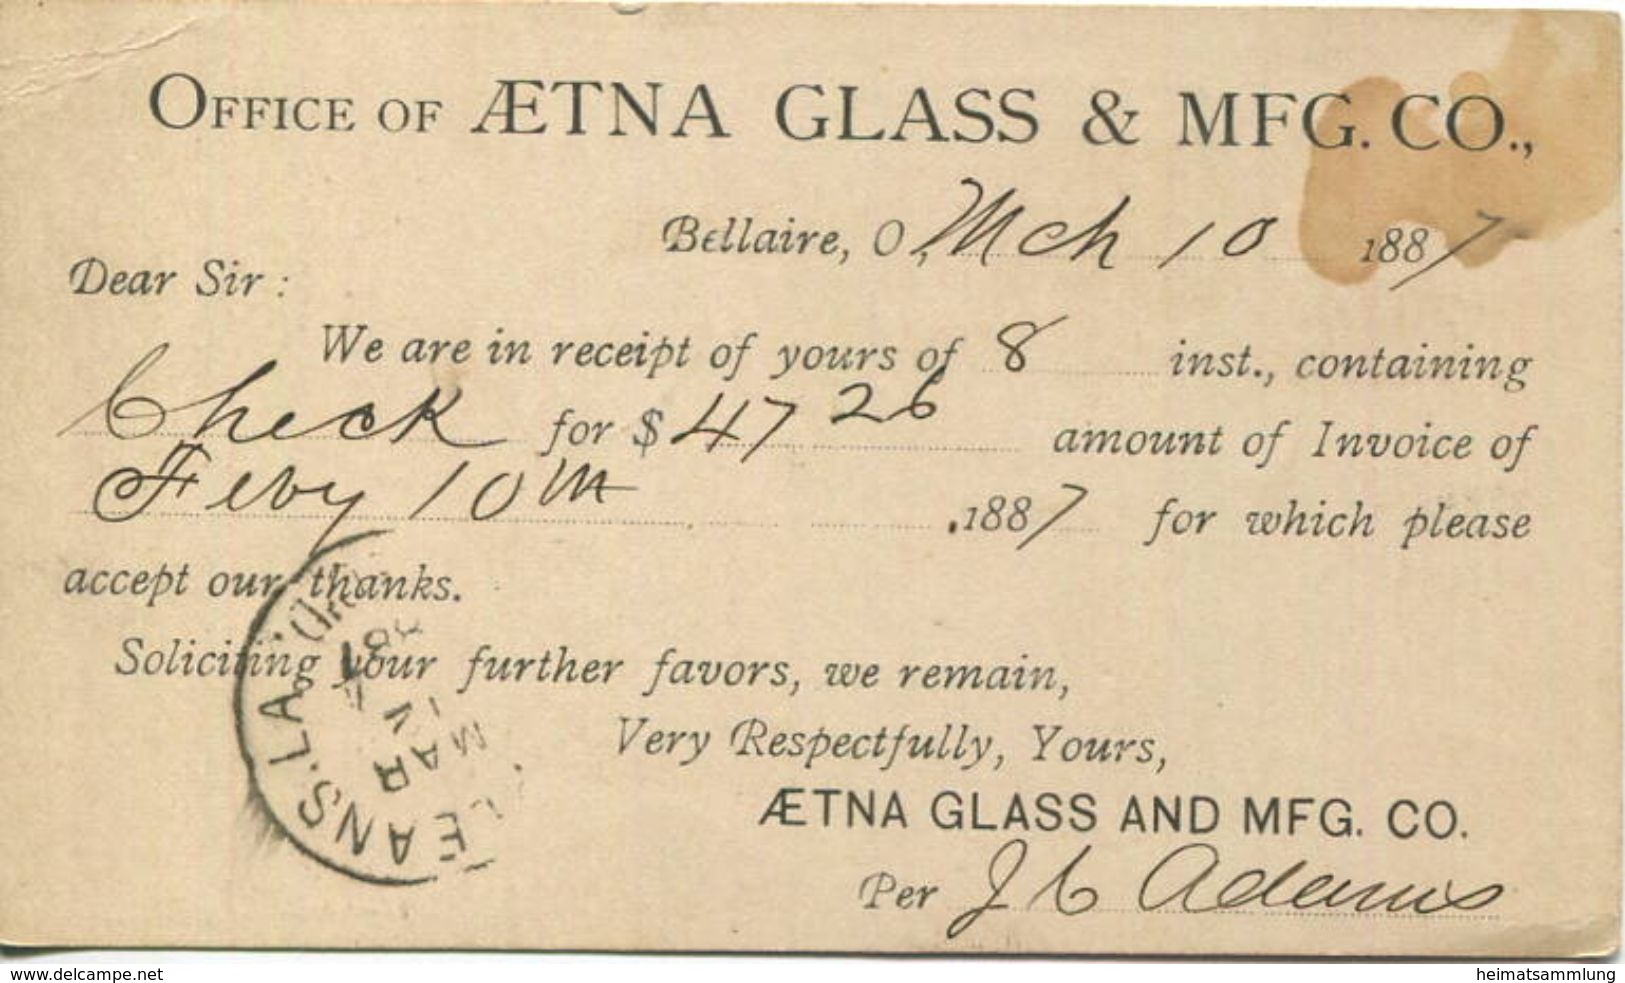 OFFICE OF ÆTNA GLASS & MFG. CO.,
Bellaire, O, Mch 10 1887
Dear Sir:
We are in receipt of yours of 8 inst., containing
Check for $ 47 26 amount of Invoice of
Feby 10th .1887 for which please
accept our thanks.
Soliciting your further favors, we remain,
Very Respectfully, Yours,
ÆTNA GLASS AND MFG. CO.
Per J C Adams
EANS. LA.
MAR
www.delcampe.net
heimatsammlung